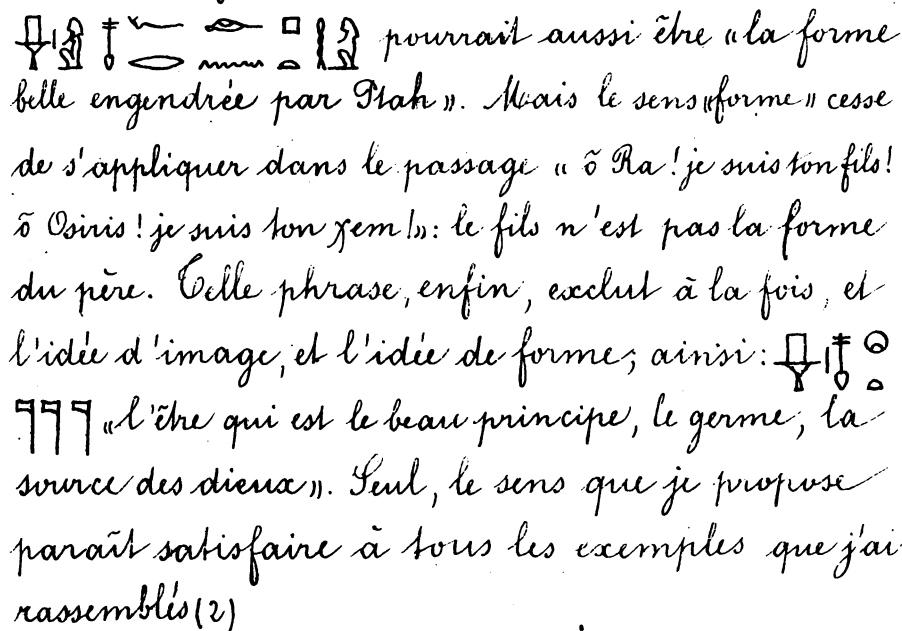 pourrait aussi être « la forme
belle engendrée par Ptah ». Mais le sens « forme » cesse
de s'appliquer dans le passage « ô Ra ! je suis ton fils !
ô Osiris ! je suis ton χem ! » : le fils n'est pas la forme
du père. Telle phrase, enfin, exclut à la fois, et
l'idée d'image, et l'idée de forme ; ainsi :
« l'être qui est le beau principe, le germe, la
source des dieux ». Seul, le sens que je propose
paraît satisfaire à tous les exemples que j'ai
rassemblés (2)